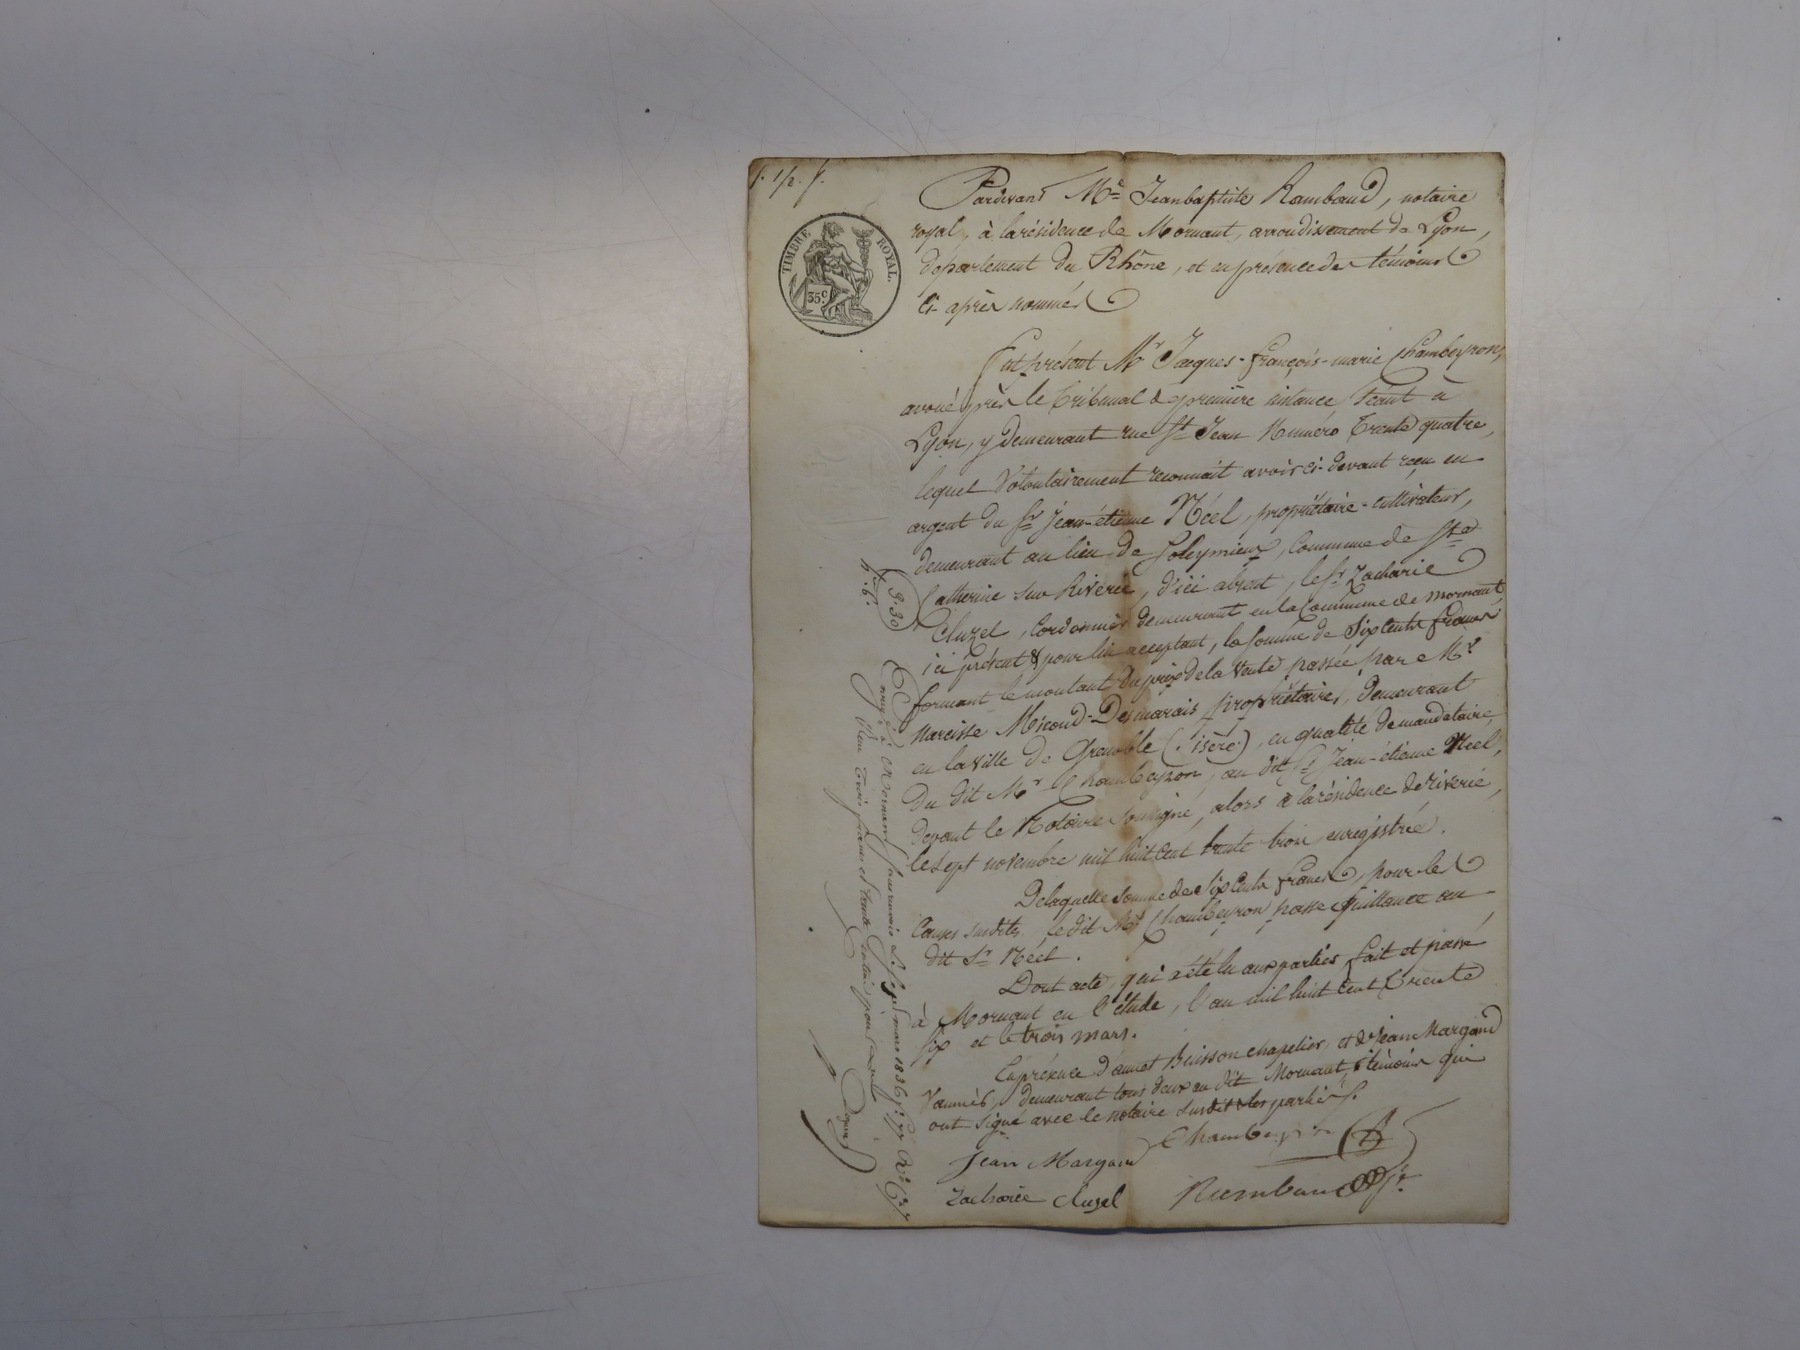 Pardevant Me Jean baptiste Rambaud, notaire
royal, à la résidence de Mornant, arrondissement de Lyon,
département du Rhône, et en présence des témoins
ci-après nommés
TIMBRE ROYAL
35c
Fut présent Mr Jacques-françois-marie Chambeyron,
avoué près le tribunal de première instance séant à
Lyon, y demeurant rue St Jean Numéro trente quatre,
lequel volontairement reconnait avoir ci-devant reçu en
argent du Sr Jean-étienne Néel, propriétaire-cultivateur,
demeurant au lieu de Soleymieux, commune de Ste
Catherine sur Riverie, d'ici absent, le Sr Zacharie
Cluzel, Cordonnier demeurant en la Commune de Mornant,
ici présent & pour lui acceptant, la somme de Six Cents francs
formant le montant du prix de la vente passée par Mr
Narcisse Micoud-Desmarais propriétaire, demeurant
en la ville de Grenoble (isère), en qualité de mandataire
du dit Mr Chambeyron, au dit Sr Jean-étienne Néel,
devant le Notaire soussigné, alors à la résidence de Riverie,
le sept novembre mil huit cent trente trois, enregistré.
De laquelle somme de Six Cents francs, pour les
causes susdites, le dit Mr Chambeyron passe quittance au
dit Sr Néel.
Dont acte, qui a été lu aux parties, fait et passé
à Mornant en l'étude, l'an mil huit cent trente
six et le trois mars.
En présence d'ennet Buisson chapelier, et de Jean Margand
Vannier, demeurant tous deux au dit Mornant, témoins qui
ont signé avec le notaire susdit et les parties.
Chambeyron
Jean Margand
Zacharie Cluzel
Rambaud
3.30
Enregé à Mornant, le sept mars 1836 fo 77
Reçu trois francs et trente centimes pour